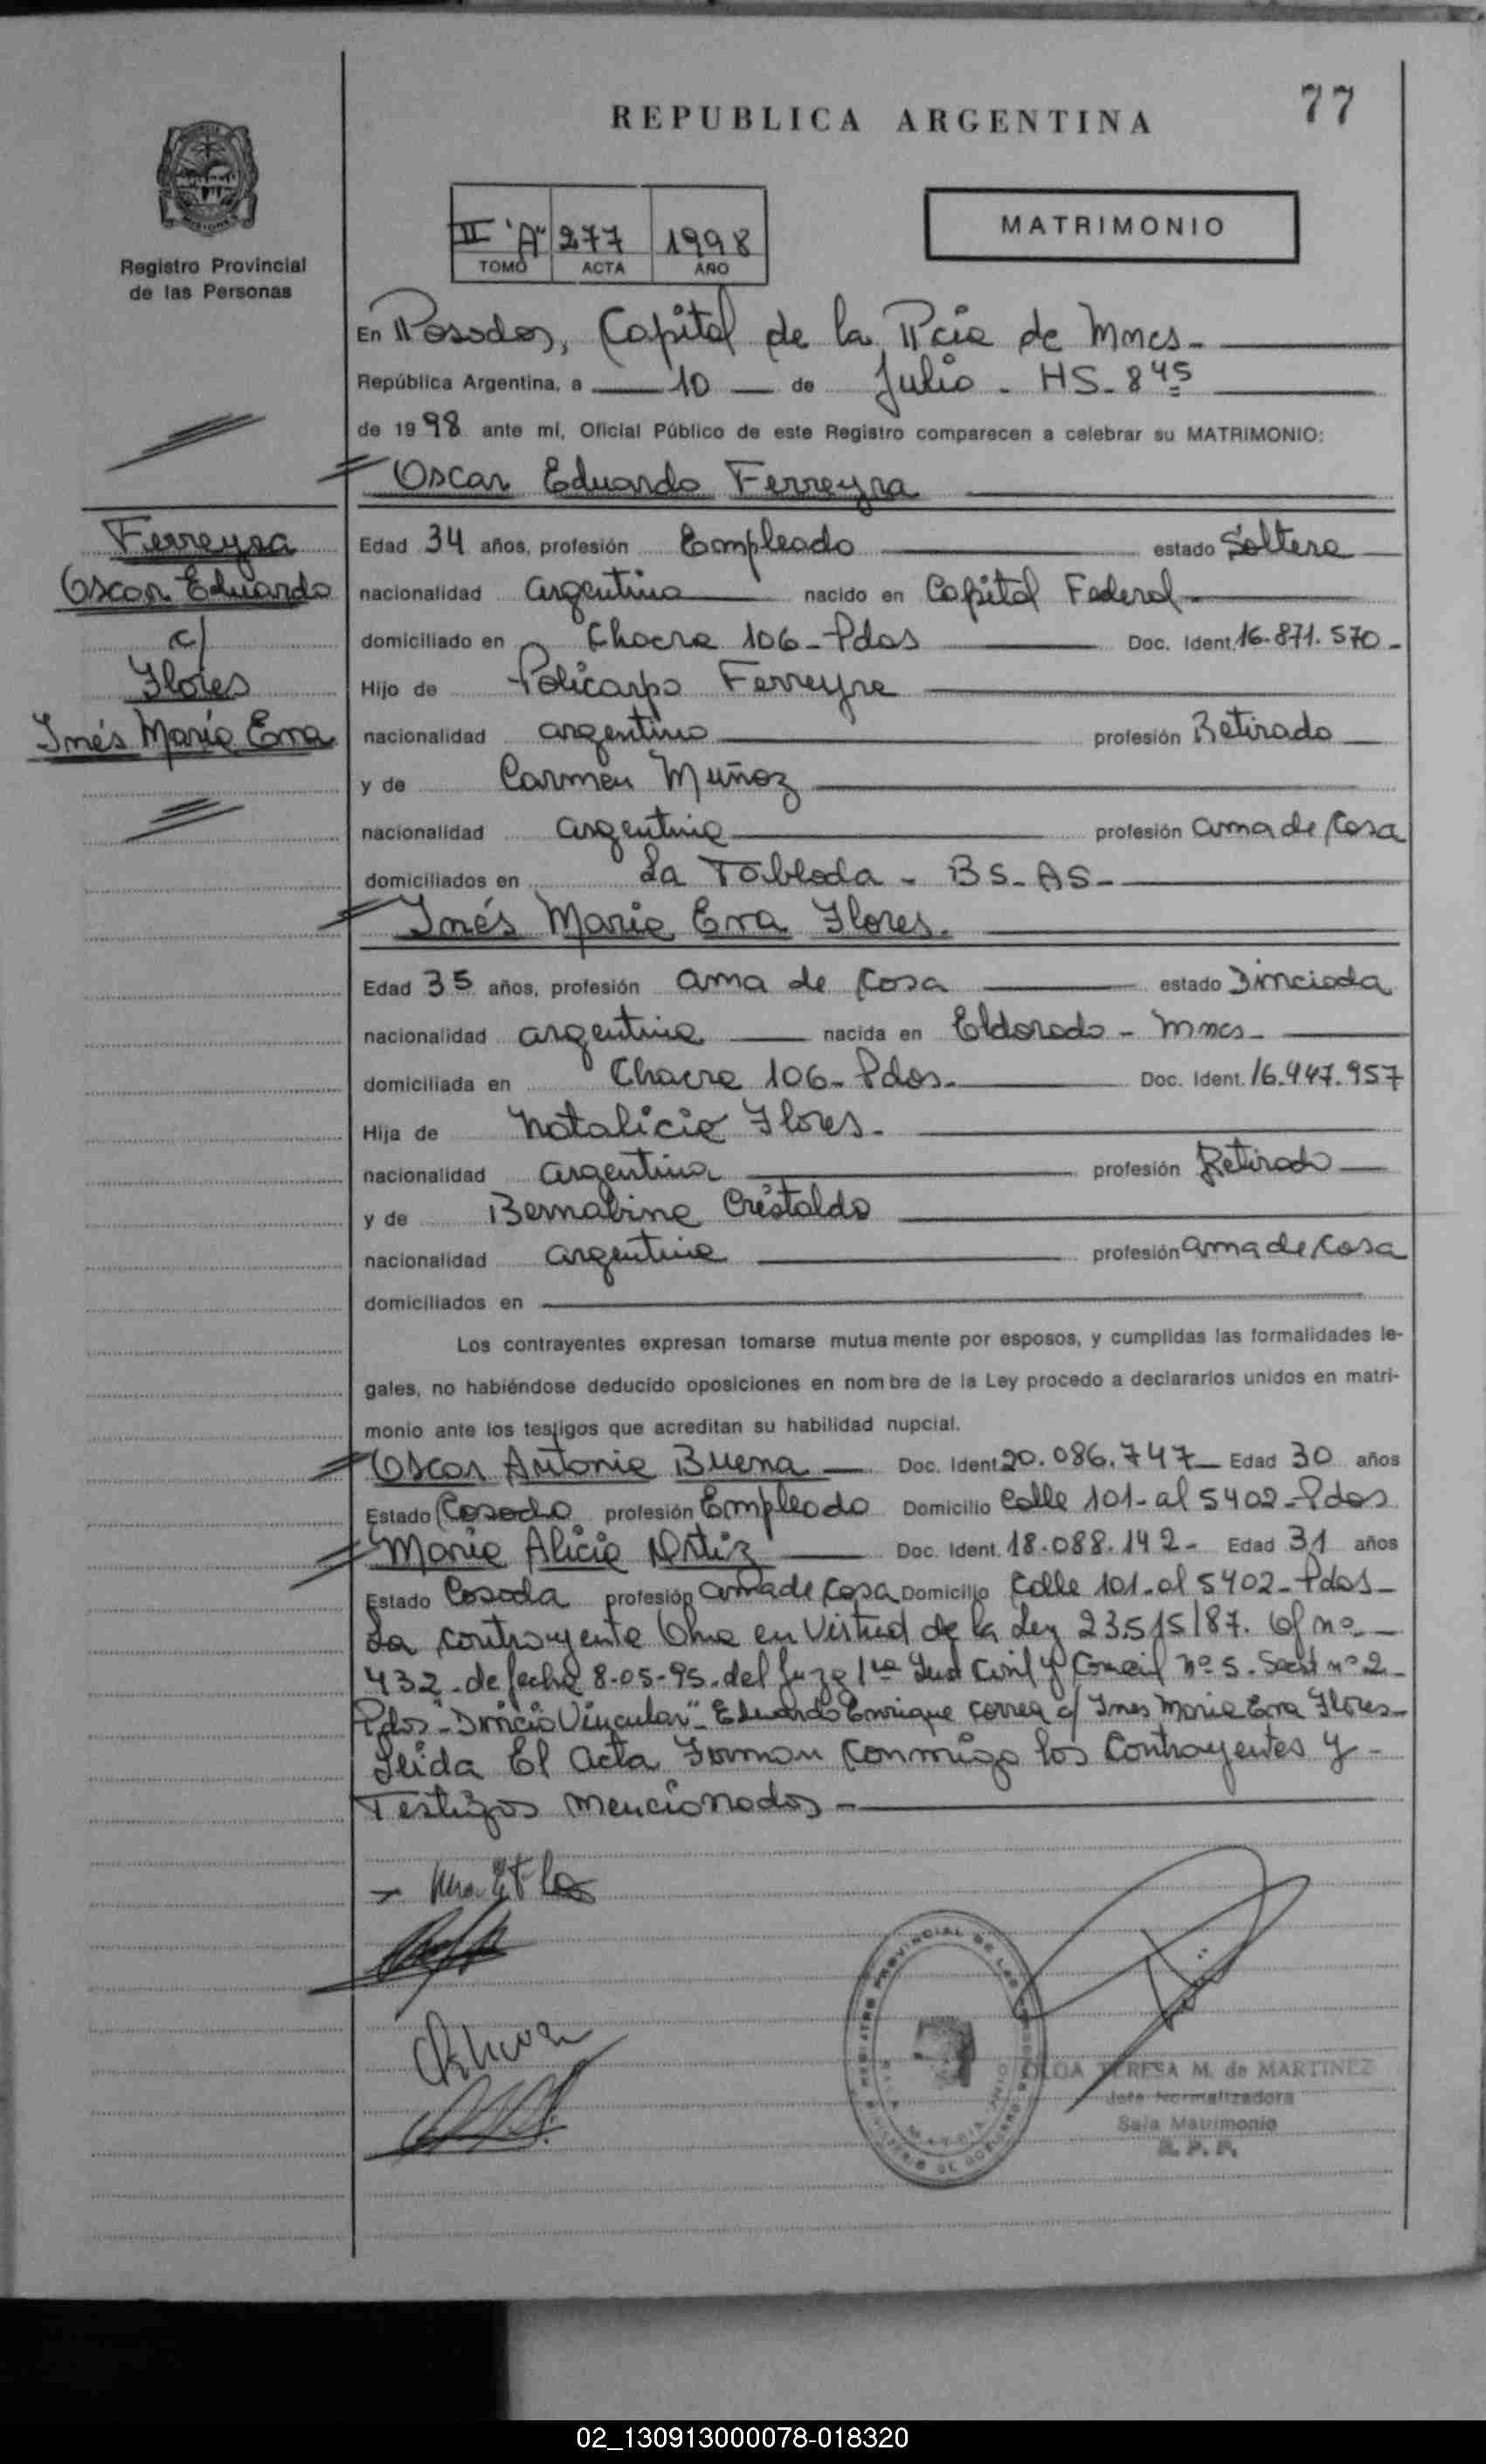 77
REPUBLICA ARGENTINA
II "A" 277 1998
TOMO ACTA AÑO
MATRIMONIO
Registro Provincial
de las Personas
En Posadas, Capital de la Pcia de Mnes.
República Argentina, a 10 de Julio - HS. 8 45
de 1998 ante mí, Oficial Público de este Registro comparecen a celebrar su MATRIMONIO:
Oscar Eduardo Ferreyra
Ferreyra
Oscar Eduardo
c/
Flores
Inés María Ema
Edad 34 años, profesión Empleado estado Soltero
nacionalidad argentino nacido en Capital Federal
domiciliado en Chacra 106 - Pdas Doc. Ident. 16.871.570 -
Hijo de Policarpo Ferreyra
nacionalidad argentino profesión Retirado
y de Carmen Muñoz
nacionalidad argentina profesión ama de Casa
domiciliados en La Tablada - BS. AS-
Inés María Ema Flores.
Edad 35 años, profesión ama de Casa estado Divorciada
nacionalidad argentina nacida en Eldorado - Mnes-
domiciliada en Chacra 106 - Pdas. Doc. Ident. 16.447.957
Hija de Natalicio Flores.
nacionalidad argentino profesión Retirado
y de Bernabina Cristaldo
nacionalidad argentina profesión ama de Casa
domiciliados en
Los contrayentes expresan tomarse mutuamente por esposos, y cumplidas las formalidades le-
gales, no habiéndose deducido oposiciones en nombre de la Ley procedo a declararlos unidos en matri-
monio ante los testigos que acreditan su habilidad nupcial.
Oscar Antonio Buena Doc. Ident. 20.086.747 Edad 30 años
Estado Casado profesión Empleado Domicilio Calle 101 - al 5402 - Pdas
María Alicia Ortiz Doc. Ident. 18.088.142 - Edad 31 años
Estado Casada profesión ama de Casa Domicilio Calle 101 - al 5402 - Pdas -
La contrayente en Virtud de la Ley 23.515/87. Of nº
432 - de fecha 8-05-95 - del Juzg 1ra Civil y Comcil nº 5. Secret nº 2 -
Pdas "Divorcio Vincular" - Eduardo Enrique Correa c/ Ines María Ema Flores -
Leida El acta Forman conmigo los Contrayentes y -
Testigos mencionados -
REGISTRO PROVINCIAL DE LAS PERSONAS
OLGA TERESA M. de MARTINEZ
Jefe Normalizadora
Sala Matrimonio
R. P. P.
02_130913000078-018320